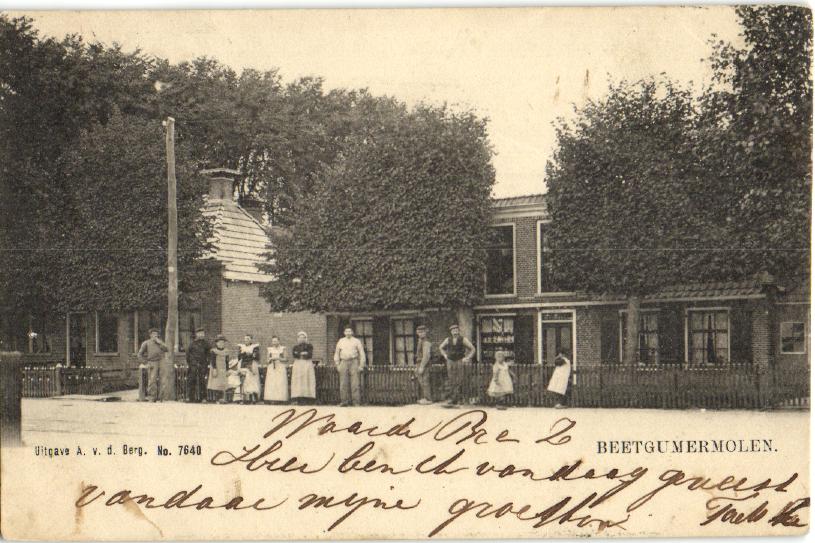 Uitgave A. v. d. Berg. No. 7640
BEETGUMERMOLEN.
Waarde
Hier ben ik vandaag geweest
vandaar mijne groeten